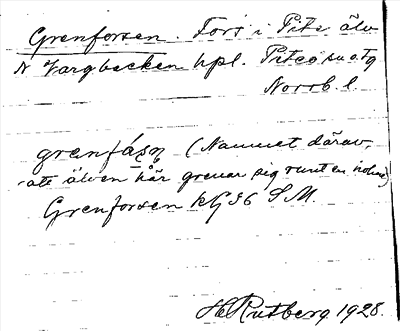 Grenforsen. Fors i Pite älv
N Vargbacken hpl. Piteå 
Norrb. l.
grenfásn (Namnet därav,
att älven här grenar sig runt en holme)
Grenforsen kG 36 S.M.
H Rutberg 1928.